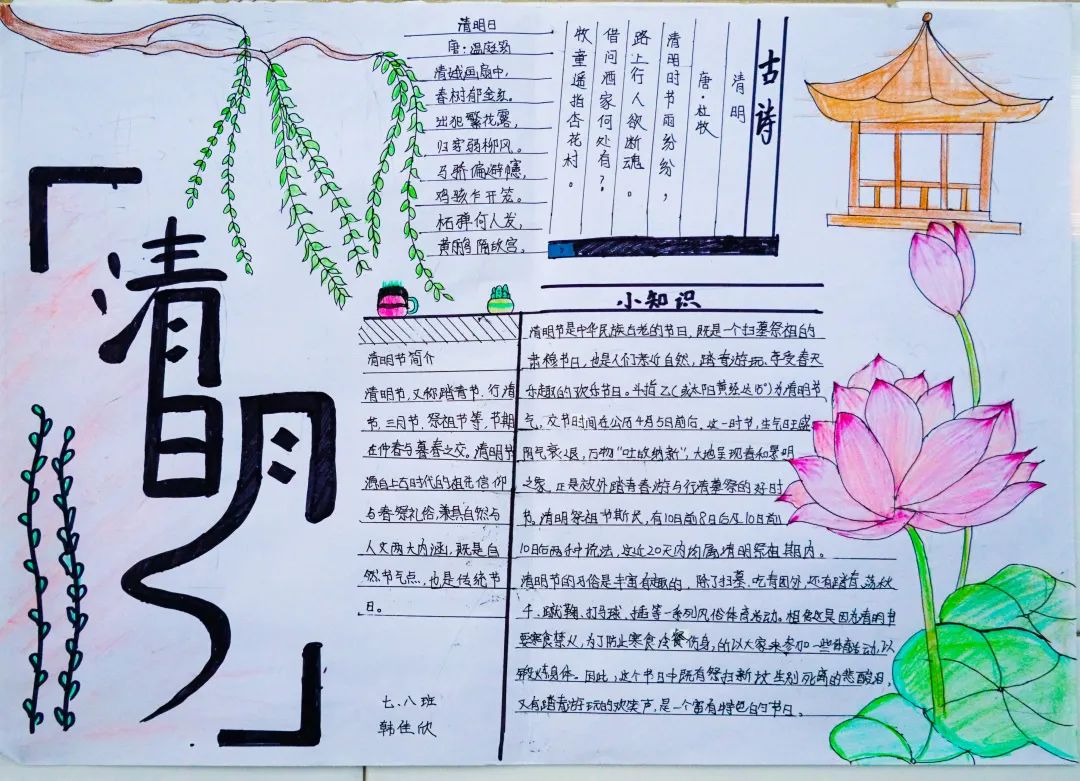 清明
清明日
唐·温庭筠
清娥画扇中，
春树郁金红。
出犯繁花露，
归穿弱柳风。
马骄偏避幰，
鸡骇乍开笼。
柘弹何人发，
黄鹂隔故宫。
古诗
清明
唐·杜牧
清明时节雨纷纷，
路上行人欲断魂。
借问酒家何处有？
牧童遥指杏花村。
清明节简介
清明节，又称踏青节、行清
节、三月节、祭祖节等，节期
在仲春与暮春之交。清明节
源自上古时代的祖先信仰
与春祭礼俗，兼具自然与
人文两大内涵，既是自
然节气点，也是传统节
日。
七、八班
韩佳欣
小知识
清明节是中华民族古老的节日，既是一个扫墓祭祖的
肃穆节日，也是人们亲近自然，踏青游玩、享受春天
乐趣的欢乐节日。斗指乙（或太阳黄经达15°）为清明节
气，交节时间在公历4月5日前后，这一时节，生气旺盛
阴气衰退，万物“吐故纳新”，大地呈现春和景明
之象，正是郊外踏青春游与行清墓祭的好时
节。清明祭祖节期长，有10日前8日后及10日前
10日后两种说法，这近20天内均属清明祭祖期内。
清明节的习俗是丰富有趣的，除了扫墓、吃青团外，还有踏青、荡秋
千、蹴鞠、打马球、插等一系列风俗体育活动。相传这是因为清明节
要寒食禁火，为了防止寒食冷餐伤身，所以大家来参加一些体育活动，以
锻炼身体。因此，这个节日中既有祭扫新坟生别死离的悲酸泪，
又有踏青游玩的欢笑声，是一个富有特色的节日。